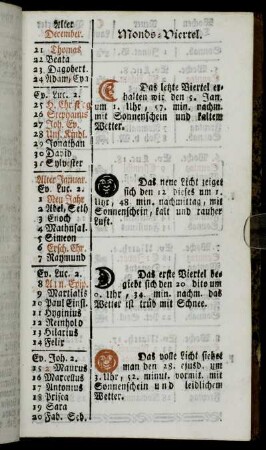 Alter
December.
21 Thomas
22 Beata
23 Dagobert
24 Adam, Ev.
Ev. Luc. 2.
25 H. Christ
26 Stephanus
27 Joh. Ev.
28 Uns. Kindl.
29 Jonathan
30 David
31 Sylvester
Alter Januar.
Ev. Luc. 2.
1 Neu Jahr
2 Abel, Seth
3 Enoch
4 Mathusal.
5 Simeon
6 Ersch. Chr.
7 Raymund
Ev. Luc. 2.
8 A 1 n. Epip.
9 Martialis
10 Paul Einsl.
11 Hyginius
12 Reinhold
13 Hilarius
14 Felix
Ev. Joh. 2.
15 2 Maurus
16 Marcellus
17 Antonius
18 Prisca
19 Sara
20 Fab. Seb.
Monds-Viertel.
Das letzte Viertel er-
halten wir den 5. Jan.
um 1. Uhr, 57. min. nachm.
mit Sonnenschein und kaltem
Wetter.
Das neue Licht zeiget
sich den 12 dieses um 1.
Uhr, 48 min. nachmittag, mit
Sonnenschein, kalt und rauher
Luft.
Das erste Viertel be-
giebt sich den 20 dito um
0. Uhr, 34. min. nachm. das
Wetter ist trüb mit Schnee.
Das volle Licht siehet
man den 28. ejusd. um
3. Uhr, 52. minut. vormit. mit
Sonnenschein und leidlichem
Wetter.